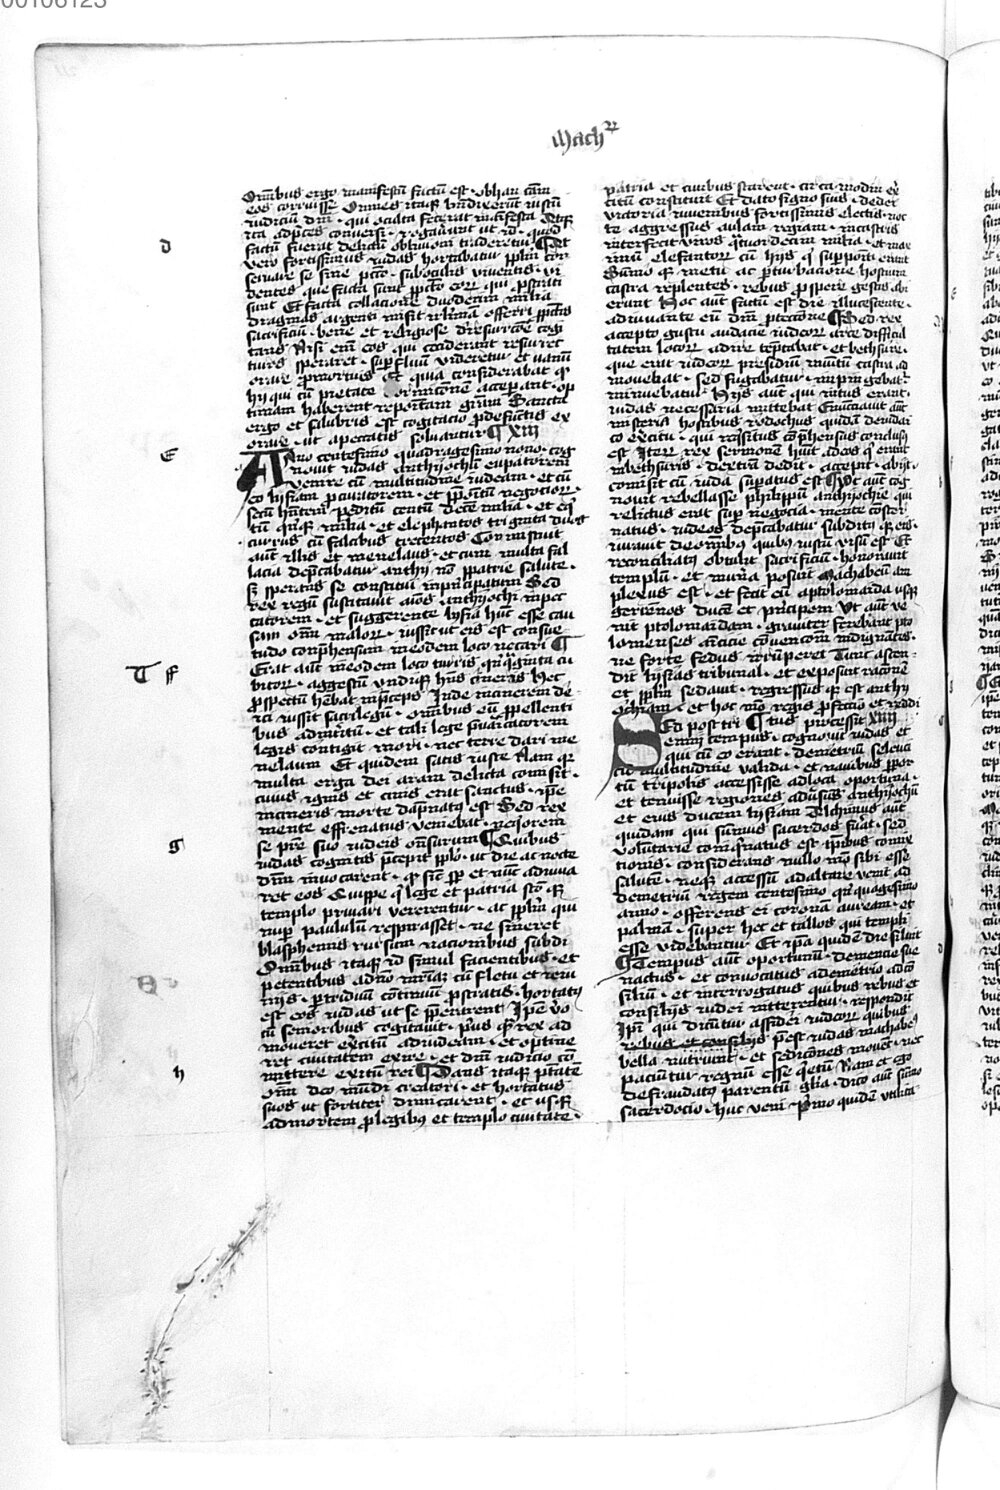 00106123
Mach
Omnibus ergo manifestum factum est · ob hanc cam
eos corruisse Omnes itaque bndixerunt iustum
iudicium dni · qui oculta fecerat manifesta Atque
ita ad preces conversi · rogaverunt ut id · quod
d
factum fuerat delictum oblivioni traderetur ¶ At
vero fortissimus iudas hortabatur pplm con
servare se sine pcco · sub oculis viventis · vi
dentes que facta sunt p pccto eorum qui pstrati
sunt Et facta collacione duodecim milia
dragmas argenti misit iherlimam offerri p pcctis
sacrificium · bene et religiose de resurrcone cogi
tans Nisi enim eos qui ceciderant resurrec
turos speraret · superfluum videretur et vanum
orare pro mortuis Et quia considerabat quod
hij qui cum pietate dormicionem acceperant · op
timam haberent repositam gram Sancta
ergo et salubris est cogitacio pro defunctis ex
orare · ut a peccatis solvantur ¶ XIII
e
Anno centesimo quadragesimo nono · cog
novit iudas anthyochum eupatorem
venire cum multitudine iudeam · et cum
eo lysiam pcuratorem · et ppositum negociorum ·
secum habentem peditum centum decem milia · et equi
tum quinque milia · et elephantos triginta duos
currus cum falcibus trecentos Commiscuit
autem illis et menelaus · et cum multa fal
lacia depcabatur anthyochi non p patrie salute ·
sed sperans se constitui in principatum Sed
rex regum suscitavit aios · anthyochi in pec
catorem · et suggerente lysia hunc esse cau
sam omnium malorum · iussit ut eis est consue
tudo comphensum in eodem loco necari ¶
T f
Erat autem in eodem loco turris quinquaginta cu
bitorum · aggestum undique habens cineris Hec
prospectum habebat in preceps Inde in cinerem de ·
ici iussit sacrilegum · omnibus eum ppellenti
bus ad interitum · et tali lege prevaricatorem
legis contigit mori · nec terre dari me
nelaum Et quidem satis iuste Nam quia
multa erga dei aram delicta comisit ·
cuius ignis et cinis erat sanctus · ipse
in cineris morte dampnatus est Sed rex
mente effrenatus veniebat · nequiorem
se patre suo iudeis ostensurum ¶ Quibus
g
iudas cognitis precepit pplo · ut die ac nocte
dnm invocarent · quo sicut semper et nunc adiuva
ret eos Quippe qui lege et patria sanctoque
templo privari vererentur · ac pplm qui
nuper paululum respirasset · ne sineret
blasphemis rursum nacionibus subdi
Omnibus itaque id simul facientibus · et
petentibus a dno miam cum fletu et ieiu
nijs · per triduum continuum pstratis · hortatus
est eos iudas ut se ppararent Ipse vero
cum senioribus cogitavit · prius quam rex ad
moveret exercitum ad iudeam · et optine
ret civitatem exire · et dni iudicio com
h
mittere exitum rei ¶ Dans itaque ptatem
omnium deo mundi creatori · et hortatus
suos ut fortiter dimicarent · et usque
ad mortem p legibus et templo civitate ·
patria et civibus starent · circa modin exer
citum constituit Et dato signo suis · dei
victoria iuvenibus fortissimis electis · noc
te aggressus aulam regiam · in castris
interfecit viros quatuordecim milia · et max
imum elefantorum cum hijs qui suppositi erant
Summoque metu ac perturbacione hostium
castra replentes · rebus prospere gestis abi
erunt Hoc autem factum est die illucescente ·
adiuvante eum dni pteccione ¶ Sed rex
accepto gustu audacie iudeorum arte difficul
tatem locorum adire temptabat · et bethsure ·
que erat iudeorum presidium munitum castra ad
movebat · sed fugabatur · impingebatur
minuebatur hijs autem qui intus erant ·
iudas necessaria mittebat Enunciavit autem
misteria hostibus rodochus quidam de iudai
co exercitu · qui requisitus comphensus conclusus
est Iterum rex sermonem habuit ad eos qui erant
in bethsuris · dextram dedit · accepit · abijt ·
comisit cum iuda superatus est Ut autem cog
novit rebellasse philippum anthyochie qui
relictus erat super negocia · mente conster
natus · iudeos depcabatur subditusque eis ·
iuravit de omnibus quibus iustum visum est Et
reconciliatus obtulit sacrificium · honoravit
templum · et munera posuit Machabeum am
plexus est · et fecit eum a ptolomaida usque
gerrenos ducem et principem Ut autem ve
nit ptolomaidam · graviter ferebant pto
lomenses amicicie convencionem indignantes ·
ne forte fedus irrumperet Tunc ascen ·
dit lysias tribunal · et exposuit racionem
et pplm sedavit · regressusque est anthy
ochiam · et hoc modo regis profectio et reddi
tus processit XIIII
Sed post tri ¶
ennij tempus · cognovit iudas et
qui cum eo erant · demetrium seleuci
cum multitudine valida · et navibus per por
tum tripolis accessisse ad loca oportuna ·
et tenuisse regiones adversus anthyochum
et eius ducem lysiam Alchimus autem
quidam qui summus sacerdos fuerat · sed
voluntarie coinquinatus est temporibus commix
tionis · considerans nullo modo sibi esse
salutem · neque accessum ad altare venit ad
demetrium regem centesimo quinquagesimo
anno · offerens ei coronam auream · et
palmam · super hec et tallos qui templi
esse videbantur Et ipsa quidem die siluit
¶ Tempus autem oportunum · demencie sue
nactus · et convocatus a demetrio ad con
silium · et interrogatus quibus rebus et
consilijs iudei niterentur · respondit
Ipsi qui dicuntur assidei iudeorum quibus
rebus et consilijs preest iudas machabeus
bella nutriunt · et sediciones movent · nec
paciuntur regnum esse quietum Nam et ego
defraudatus parentum gloria · dico autem summo
sacerdocio · huc veni Primo quidem utilita